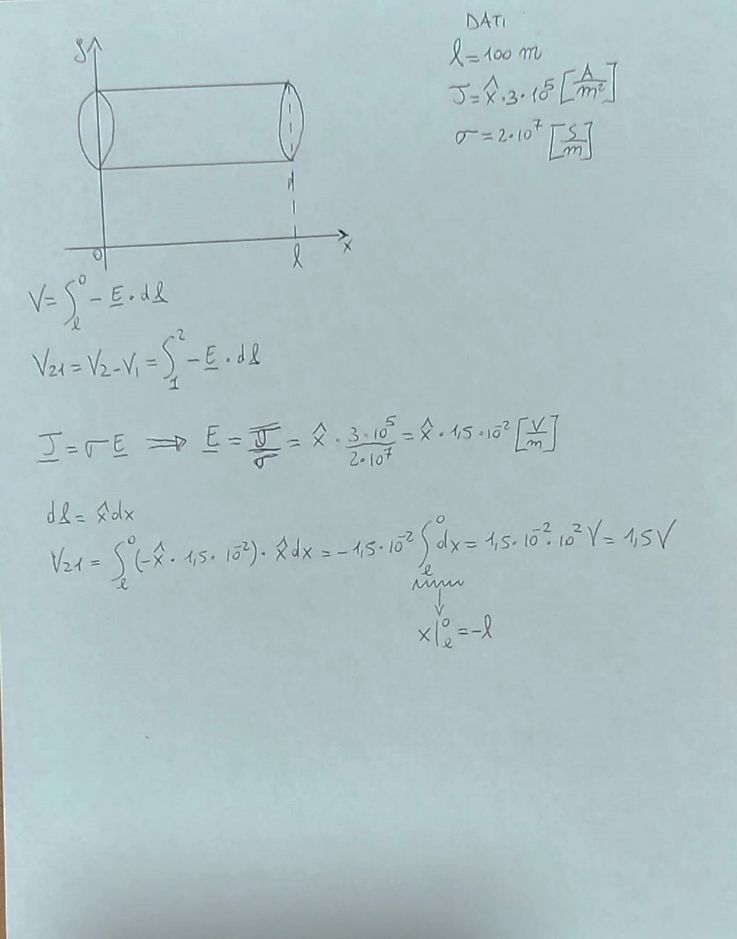 DATI
l = 100 m
J = x̂ · 3 · 10⁵ [A/m²]
σ = 2 · 10⁷ [S/m]
0
l
x
V = ∫ₗ⁰ - E · dl
V21 = V2 - V1 = ∫₁² - E · dl
J = σ E ⟹ E = J/σ = x̂ · 3·10⁵/2·10⁷ = x̂ · 1,5 · 10⁻² [V/m]
dl = x̂ dx
V21 = ∫ₗ⁰ (-x̂ · 1,5 · 10⁻²) · x̂ dx = -1,5 · 10⁻² ∫ₗ⁰ dx = 1,5 · 10⁻² · 10² V = 1,5 V
↓
x|ₗ⁰ = -l